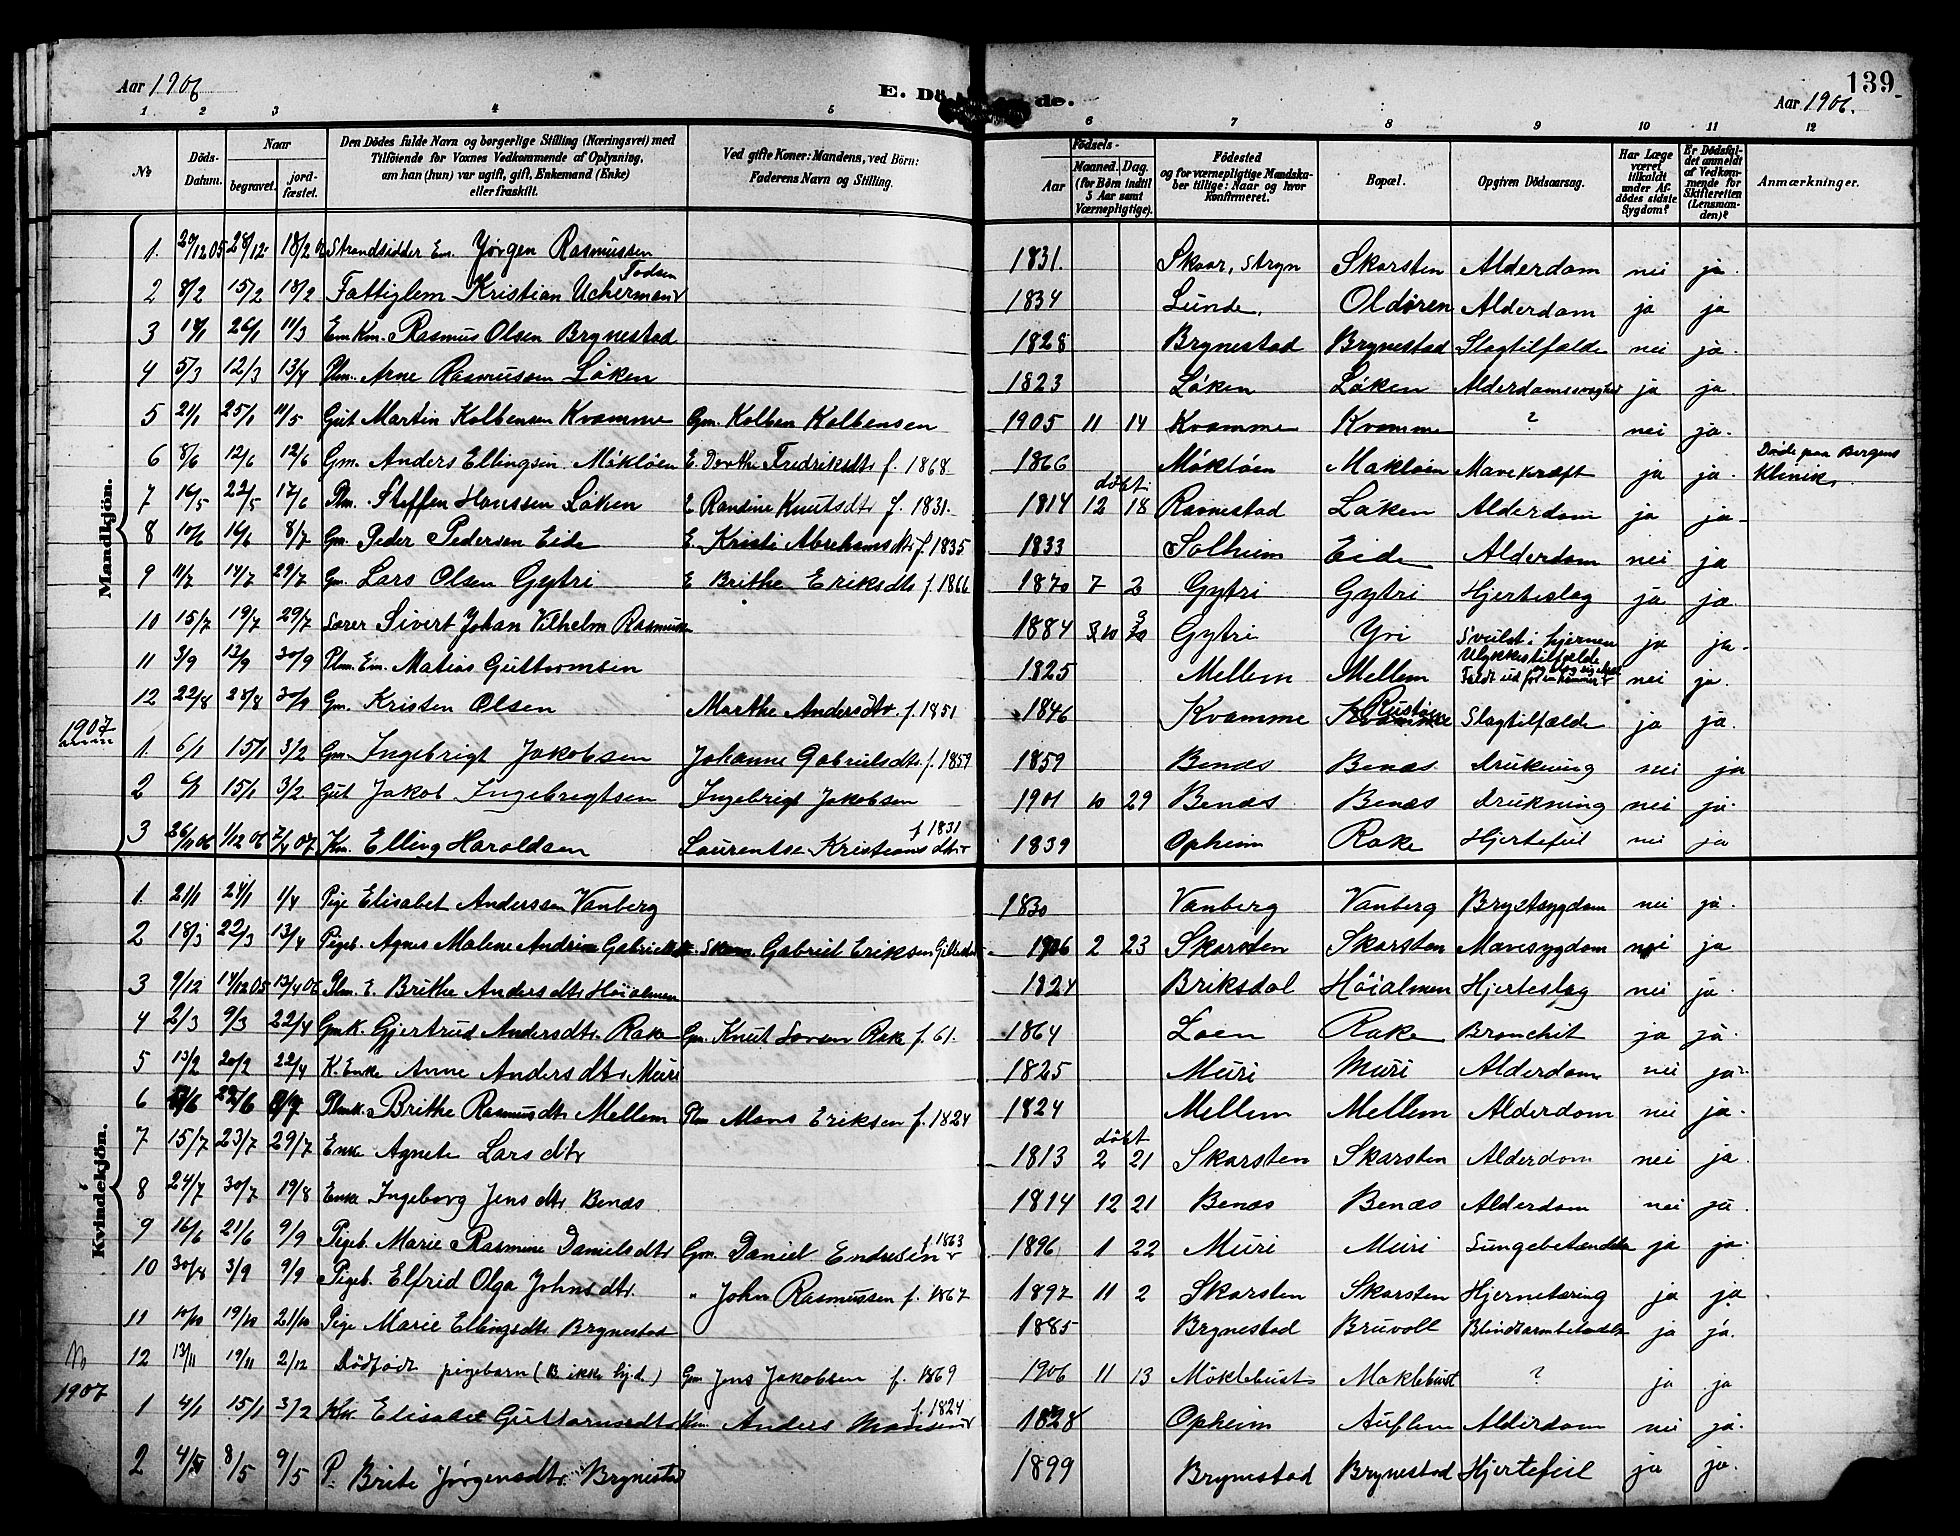 Aar 1906
E. Dö de.
139
Aar 1906.
1 2 3 4 5 6 7 8 9 10 11 12
No
Döds-Datum.
Naar
begravet.
jord-fæstet.
Den Dödes fulde Navn og borgerlige Stilling (Næringsvei) med
Tilföiende for Voxnes Vedkommende af Oplysning,
om han (hun) var ugift, gift, Enkemand (Enke)
eller fraskilt.
Ved gifte Koner: Mandens, ved Börn:
Faderens Navn og Stilling.
Födsels-
Aar
Maaned. Dag.
(for Börn indtil
5 Aar samt
Værnepligtige).
Födested
og for værnepligtige Mandska-
ber tillige: Naar og hvor
konfirmeret.
Bopæl.
Opgiven Dödsaarsag.
Har Læge
været
tilkaldt
under Af-
dödes sidste
Sygdom?
Er Dödsfal-
det anmeldt
af Vedkom-
mende for
Skifteretten
(Lensman-
den)?
Anmærkninger.
Mandkjön.
1. 28/12 Strandsidder Em. Jörgen Rasmussen 1831. Skaar, Stryn Skarsten Alderdom nei ja.
2 8/2 15/2 18/2 Fattiglem Kristian Uchermann 1834 Lunde, Oldören Alderdom ja ja
3 18/1 26/1 11/3 Em Km. Rasmus Olsen Brynestad 1828 Brynestad Brynestad Slagtilfælde nei ja.
4 5/3 12/3 13/4 Plm. Arne Rasmussen Löken 1823 Löken Löken ja ja
5 21/1 25/1 11/5 Gut Martin Kolbensen Kvamme Gm. Kolben Kolbensen 1905 11 14 Kvamme Kvamme ? nei ja.
6 8/6 12/6 12/6 Gm. Anders Ellingsen Möklöen E. Dorthe Fredriksdtr f. 1868 1866 Möklöen Möklöen Mavekræft ja ja. Döde paa Bergens Klinik.
7 16/5 22/5 17/6 Plm. Steffen Hanssen Löken E Ransine Knutsdtr f. 1831. 1814 döbt 12 18 Ravnestad Löken Alderdom ja ja
8 16/6 8/7 Gm. Peder Pedersen Eide E. Kristi Abrahamsdtr f. 1835 1833 Solheim Eide Alderdom nei ja
9 11/7 14/7 29/7 Gm. Lars Olsen Gytri E Brithe Eriksdtr f. 1866 1870 7 2 Gytri Gytri Hjerteslag ja ja.
10 15/7 19/7 29/7 Sivert Johan Vilhelm 1884 Gytri Yri Svulst i hjernen ja ja
11 3/9 13/9 30/9 Plm. Em. Matias Guttormsen 1825 Mellem Mellem Ulykkestilfælde nei ja.
12 22/8 28/8 30/9 Gm. Kristen Olsen Marthe Andersdtr. f. 1851 1846 Kvamme Slagtilfælde ja ja.
1907
1. 6/1 15/1 3/2 Gm. Ingebrigt Jakobsen Johanne Gabrielsdtr. f. 1859 1859 Benæs Benæs Drukning nei ja
2 15/1 3/2 Gut Jakob Ingebregtsen Ingebrigt Jakobsen 1901 10 29 Benæs Benæs Drukning nei ja.
3 1/12 06 Km. Elling Haroldsen Laurentse Kristiansdtr f 1831 1839 Opheim Rake Hjertefeil nei ja
Kvindekjön.
1. 21/1 24/1 1/4 Pige Elisabet Anderssen Vanberg 1830 Vanberg Vanberg Brystsygdom nei ja.
2 18/3 22/3 13/4 Pigeb. Agnes Malene Andrine Gabriel Eriksen 1906 2 23 Skarsten Skarsten Mavesygdom nei ja
3 9/12 14/12 05 13/4 06 Plm. E. Brithe Andersdtr Höialmen 1824 Briksdal Höialmen Hjerteslag nei ja.
4 2/3 9/3 22/4 GmK. Gjertrud Andersdtr. Rake Gm. Knut Soren Rake f. 61. 1864 Loen Rake Bronchit ja ja.
5 13/2 20/2 22/4 K. Enke Anne Andersdtr Muri 1825 Muri Muri Alderdom nei ja
6 Plmk. Brithe Rasmusdtr Mellem Plm Mons Eriksen f. 1824 1824 Mellem Mellem Alderdom nei ja.
7 15/7 23/7 29/7 Enke Agnete Larsdtr 1813 döbt 2 21 Skarsten Skarsten Alderdom nei ja.
8 24/7 30/7 19/8 Enke Ingeborg Jensdtr Benæs 1814 12 21 Benæs Benæs Alderdom nei ja.
9 16/6 21/6 9/9 Pigeb. Marie Rasmine Danielsdtr Gm. Daniel Endresen f. 1863 1896 1 22 Muri Muri ja ja.
10 30/8 3/9 9/9 Pigeb. Elfrid Olga Johnsdtr. " John Rasmussen f. 1867 1897 11 2 Skarsten Skarsten Hjernetæring ja ja
11 10/10 19/10 21/10 Pige Marie Ellingsdtr Brynestad 1885 Brynestad Bruvoll ja ja.
12 13/11 19/11 2/12 Dödfödt pigebarn (B. ikke hj.d.) Gm Jens Jakobsen f. 1869 1906 11 13 Möklebust Möklebust ? ja ja
No
1907
1 4/1 15/1 3/2 Elisabet Guttormsdtr Anders Monsen f. 1824 1828 Opheim Auflem Alderdom nei ja.
2 8/5 9/5 P. Brite Jörgensdtr. Brynestad 1899 Brynestad Brynestad Hjertefeil ja ja.